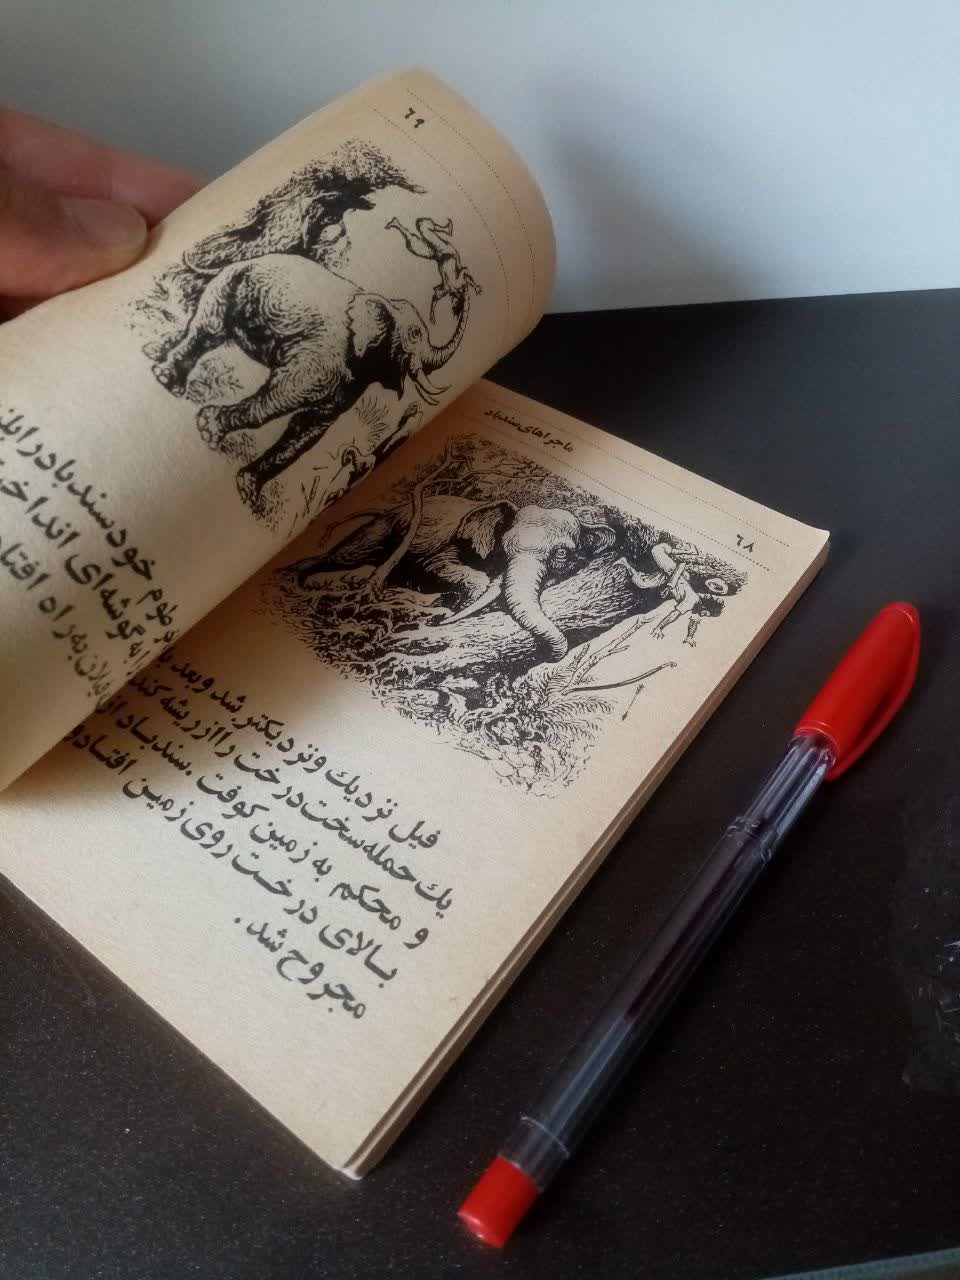 ماجراهای سندباد
۶۸
فیل نزدیك ونزدیکتر شد وبعد با
یك حمله سخت درخت را از ریشه کند
و محکم به زمین کوفت . سندباد از
بالای درخت روی زمین افتاد و
مجروح شد .
۶۹
خود سندباد را بلند
را به گوشه‌ای انداخت
فیلان به راه افتاد